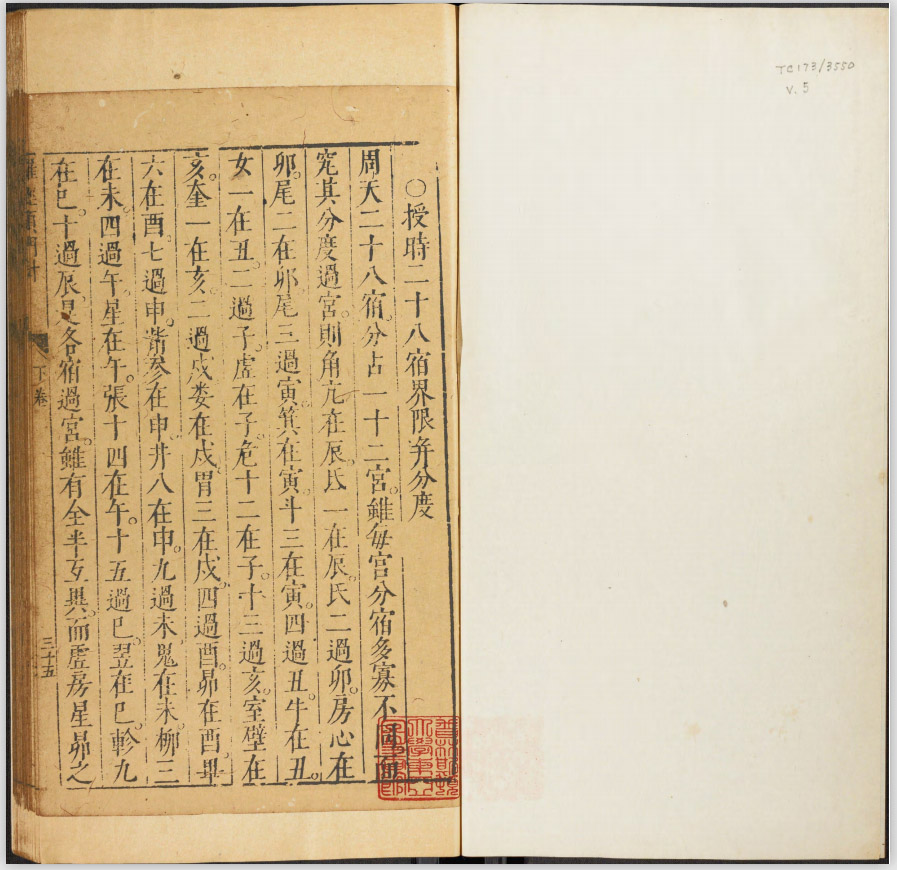 TC173/3550
v.5
○授時二十八宿界限并分度
周天二十八宿。分占一十二宮。雖每宮分宿多寡不
究其分度過宮。則角亢在辰。氐一在辰。氐二過卯。房心在
卯。尾二在卯。尾三過寅。箕在寅。斗三在寅。四過丑。牛在丑。
女一在丑。二過子。虛在子。危十二在子。十三過亥。室壁在
亥。奎一在亥。二過戌。婁在戌。胃三在戌。四過酉。昴在酉。畢
六在酉。七過申。觜參在申。井八在申。九過未。鬼在未。柳三
在未。四過午。星在午。張十四在午。十五過巳。翌在巳。軫九
在巳。十過辰。是各宿過宮。雖有全半互異。而虛房星昴之
下卷
三十五